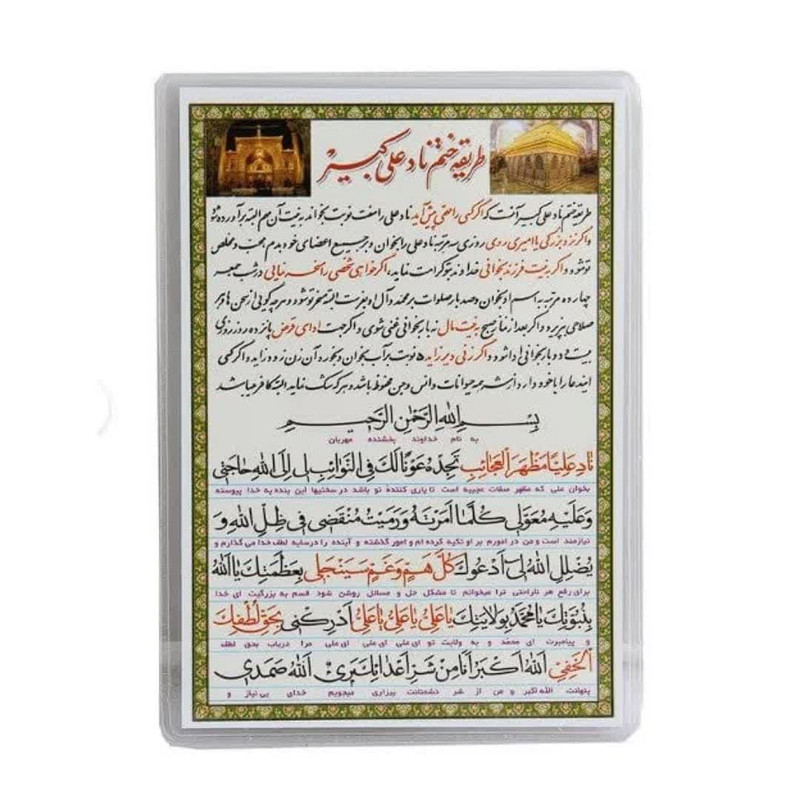 طریقه ختم ناد علی کبیر
طریقه ختم ناد علی کبیر آنست که اگر کسی را مهمی پیش آید ناد علی را هفت نوبت بخواند به نیت آن مهم البته برآورده شود
و اگر نزد بزرگی یا امیری روی روزی سه مرتبه ناد علی را بخوان و بر جمیع اعضای خود بدم محب و مخلص
تو شود و اگر به نیت فرزند بخوانی خداوند بتو کرامت نماید، اگر خواهی شخصی را مسخر نمایی در شب جمعه
چهارده مرتبه به اسم او بخوان و صد بار صلوات بر محمد و آل او بفرست البته مسخر تو شود و هر چه گویی از سخن
بپذیرد و اگر بعد از نماز صبح به نیت مال نه بار بخوانی غنی شوی و اگر جهت ادای قرض پانزده روز روزی
بیست و دو بار بخوانی ادا شود و اگر زنی دیر زاید ۵ نوبت بر آب بخوان و بخورد آن زن زود زاید و اگر کسی
این دعا را با خود دارد از شر همه حیوانات و انس و جن محفوظ باشد و هر که شک نماید البته کافر میباشد
بِسْمِ اللهِ الرَّحْمٰنِ الرَّحیمِ
به نام خداوند بخشنده مهربان
نادِ عَلِیًّا مَظْهَرَ الْعَجائِبِ تَجِدْهُ عَوْنًا لَکَ فِی النَّوائِبِ لی اِلَی اللهِ حاجَتی
بخوان علی که مظهر صفات عجیبه است تا یاری کنندهٔ تو باشد در سختیها این بنده به خدا پیوسته
وَ عَلَیْهِ مُعَوَّلی کُلَّما اَمَرْتَهُ وَ رَمَیْتُ مُنْقَضی فی ظِلِّ اللهِ وَ
نیازمند است و من در امورم بر او تکیه کرده ام و امور گذشته و آینده را در سایه لطف خدا می گذارم و
یُضْلِلِ اللهُ لی اَدْعُوکَ کُلَّ هَمٍّ وَ غَمٍّ سَیَنْجَلی بِعَظَمَتِکَ یا اَللهُ
برای رفع هر ناراحتی ترا میخوانم تا مشکل حل و مسائل روشن شود قسم به بزرگیت ای خدا
بِنُبُوَّتِکَ یا مُحَمَّدُ بِوِلایَتِکَ یا عَلِیُّ یا عَلِیُّ یا عَلِیُّ اَدْرِکْنی بِحَقِّ لُطْفِکَ
و پیامبرت ای محمد و به ولایت تو ای علی ای علی ای علی مرا دریاب بحق لطف
الْخَفِیِّ اَللهُ اَکْبَرُ اَنَا مِنْ شَرِّ اَعْدائِکَ بَریٌ اَللهُ صَمَدی
پنهانت الله اکبر و من از شر دشمنانت بیزاری میجویم خدای بی نیاز و